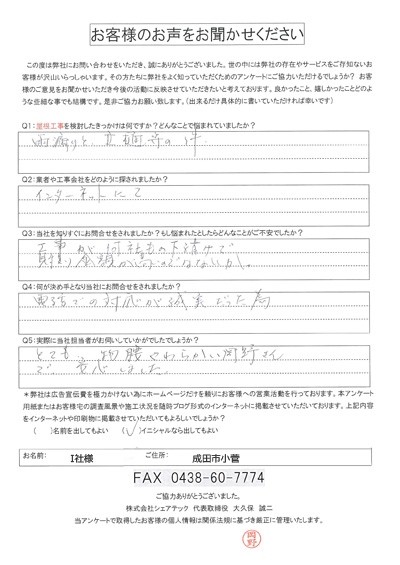 お客様のお声をお聞かせください
この度は弊社にお問い合わせをいただき、誠にありがとうございました。世の中には弊社の存在やサービスをご存知ないお
客様が沢山いらっしゃいます。その方たちに弊社をよく知っていただくためのアンケートにご協力いただけるでしょうか？ お客
様のご意見をお聞かせいただき今後の活動に反映させていただきたいと考えております。良かったこと、嬉しかったことどのよ
うな些細な事でも結構です。是非ご協力お願い致します。（出来るだけ具体的に書いていただければ幸いです）
Q1：屋根工事を検討したきっかけは何ですか？どんなことで悩まれていましたか？
雨漏りと、 等の件
Q2：業者や工事会社をどのように探されましたか？
インターネットにて
Q3：当社を知りすぐにお問合せをされましたか？もし悩まれたとしたらどんなことがご不安でしたか？
工事が何社もの下請けで
見積り金額が高いのではないか。
Q4：何が決め手となり当社にお問合せをされましたか？
電話での対応が誠実だった為
Q5：実際に当社担当者がお伺いしていかがでしたでしょうか？
とても、物腰やわらかい岡野さん
で安心しました。
＊弊社は広告宣伝費を極力かけない為にホームページだけを頼りにお客様への営業活動を行っております。本アンケート
用紙またはお客様宅の調査風景や施工状況を随時ブログ形式のインターネットに掲載させていただいております。上記内容
をインターネットや印刷物に掲載させていただいてもよろしいでしょうか？
（ ）名前を出してもよい （✓）イニシャルなら出してもよい
お名前： I社様 ご住所： 成田市小菅
FAX 0438-60-7774
ご協力ありがとうございました。
株式会社シェアテック 代表取締役 大久保 誠二
当アンケートで取得したお客様の個人情報は関係法規に基づき厳正に管理いたします。
岡野